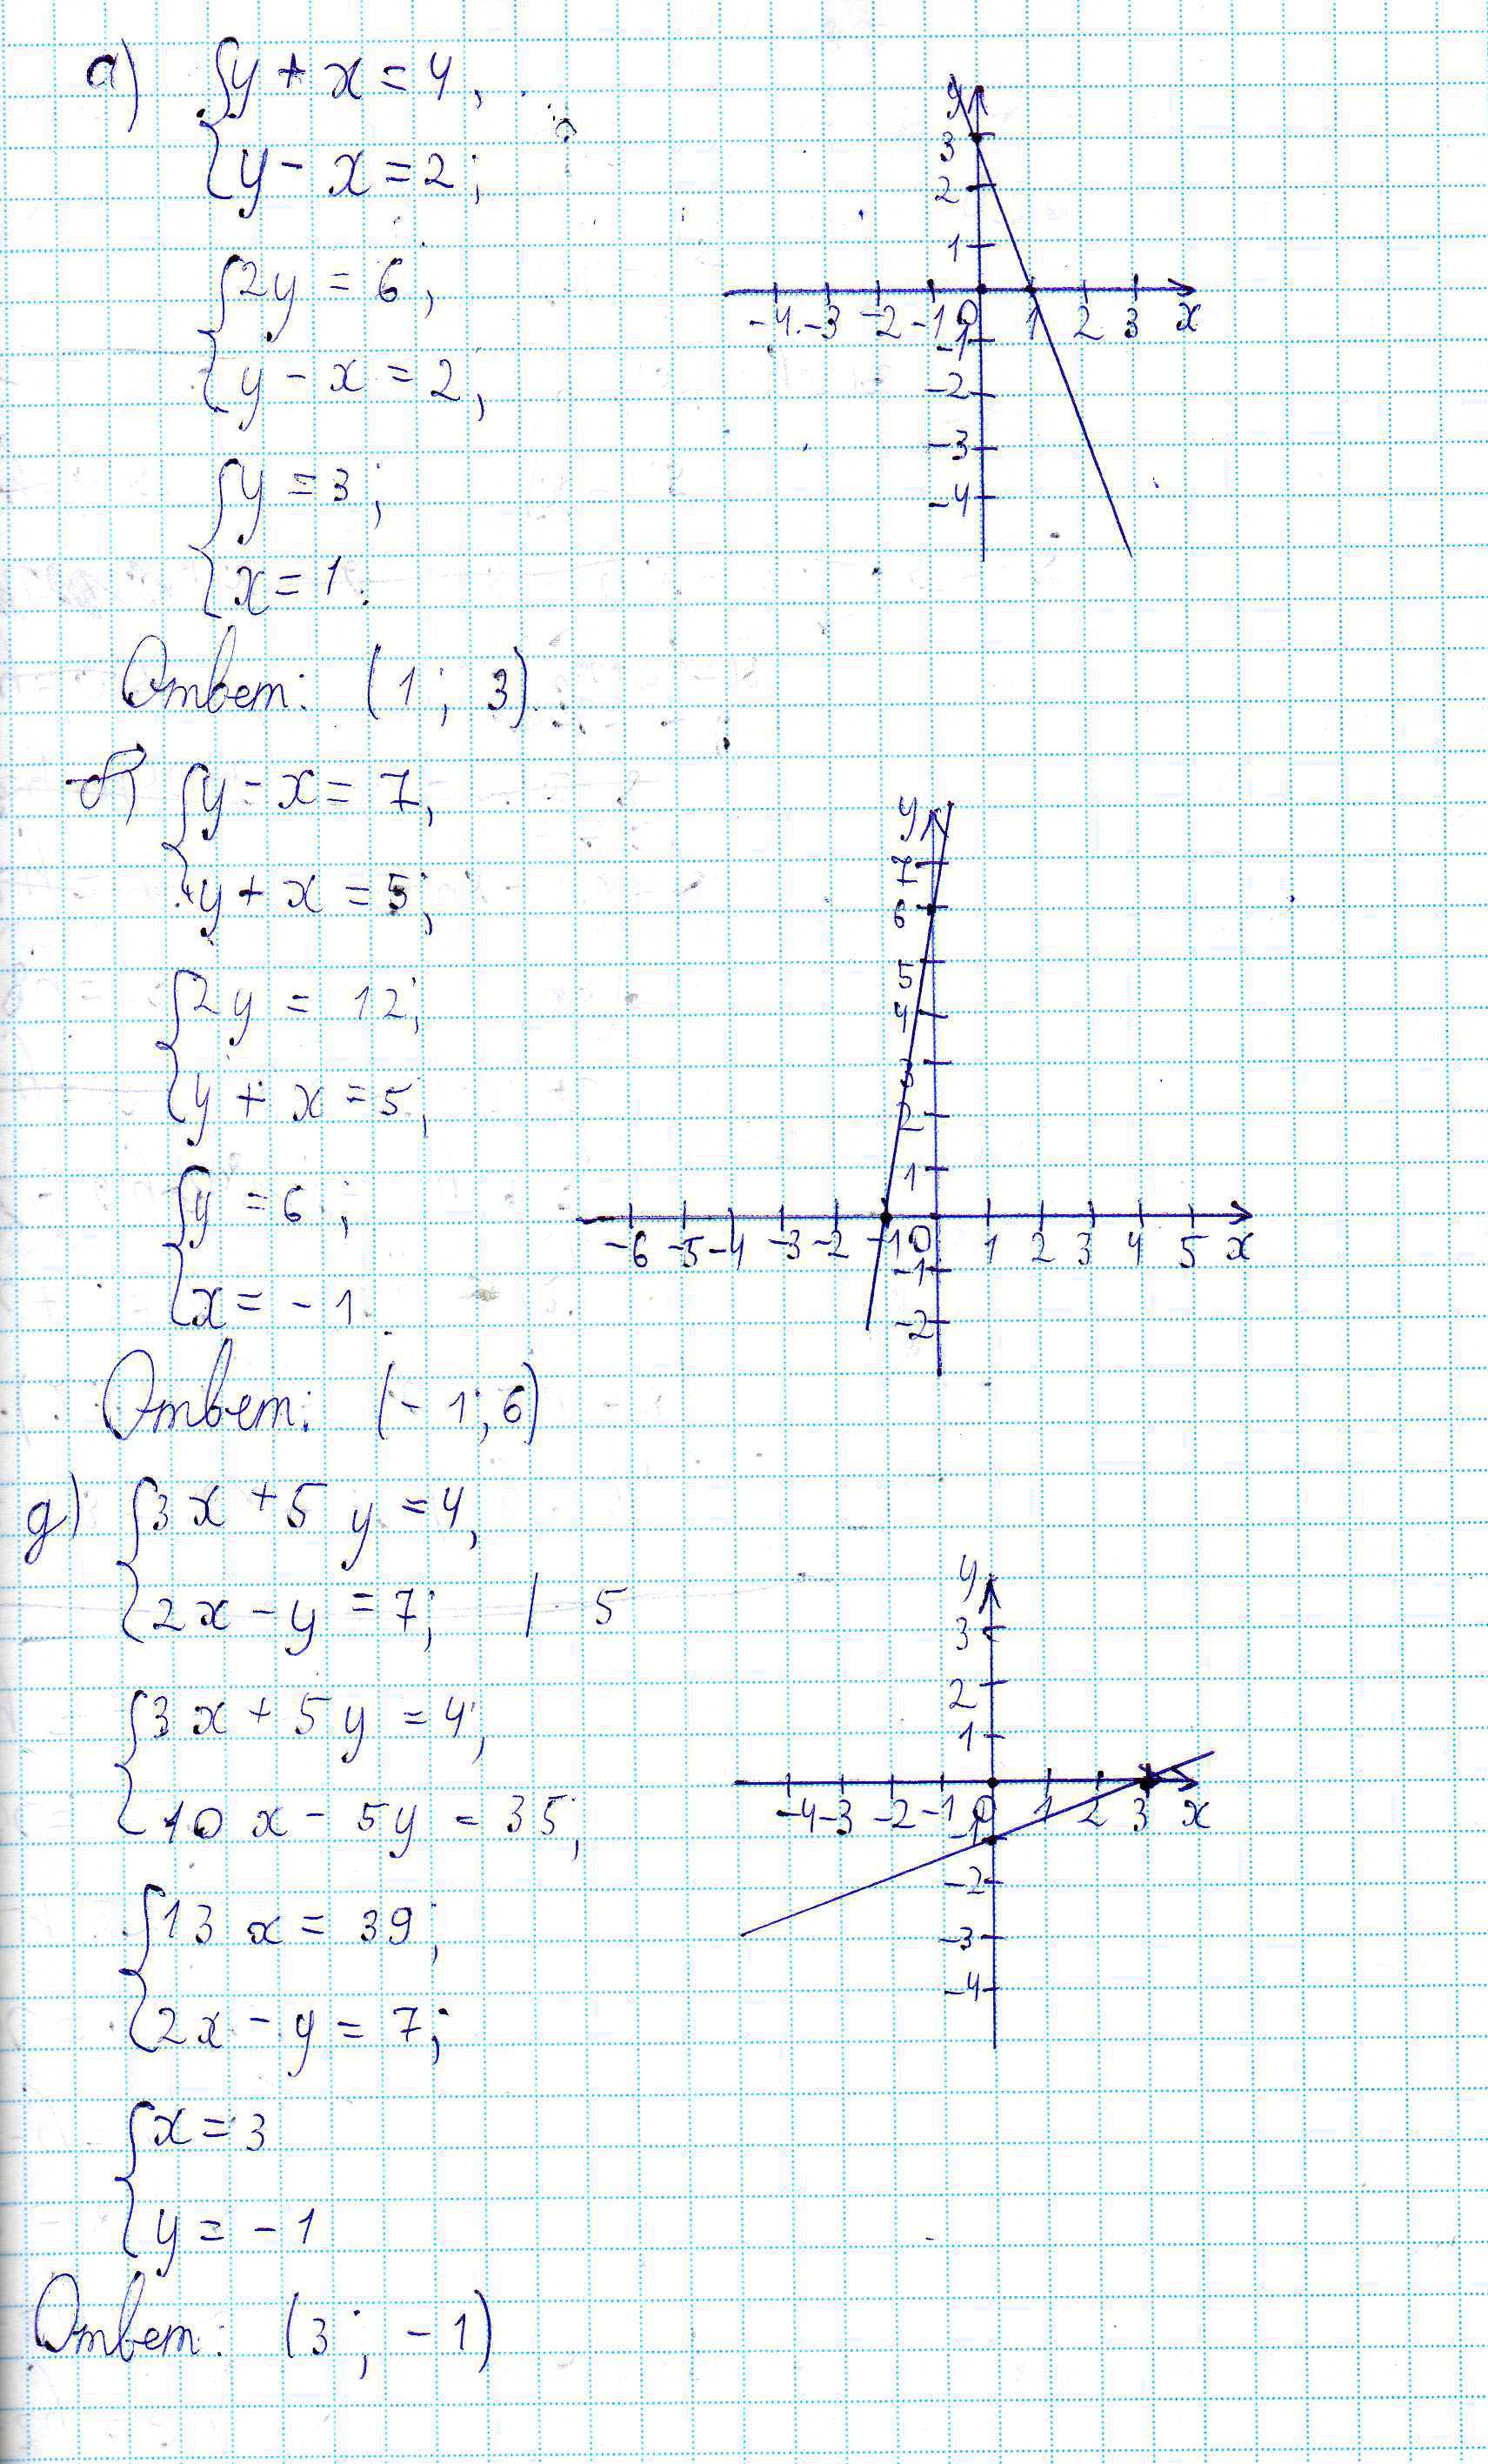 а) { y + x = 4,
{ y - x = 2;
{ 2y = 6,
{ y - x = 2,
{ y = 3;
{ x = 1.
Ответ: (1; 3).
y
3
2
1
-4 -3 -2 -1 0 1 2 3 x
-1
-2
-3
-4
б) { y - x = 7,
{ y + x = 5;
{ 2y = 12;
{ y + x = 5,
{ y = 6;
{ x = -1.
Ответ: (-1; 6)
y
7
6
5
4
3
2
1
-6 -5 -4 -3 -2 -1 0 1 2 3 4 5 x
-1
-2
д) { 3x + 5y = 4,
{ 2x - y = 7; | · 5
{ 3x + 5y = 4,
{ 10x - 5y = 35;
{ 13x = 39;
{ 2x - y = 7;
{ x = 3
{ y = -1
Ответ: (3; -1)
y
3
2
1
-4 -3 -2 -1 0 1 2 3 x
-1
-2
-3
-4